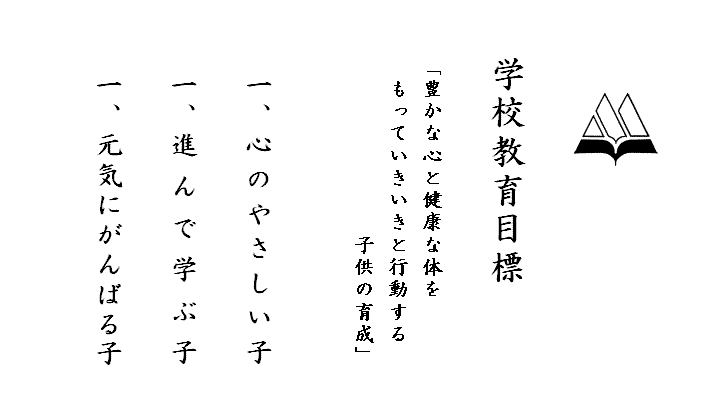 学校教育目標
「豊かな心と健康な体を
もっていきいきと行動する
子供の育成」
一、心のやさしい子
一、進んで学ぶ子
一、元気にがんばる子